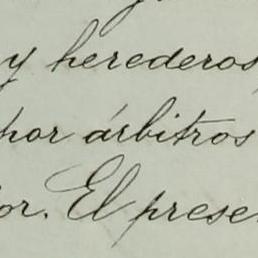 y herederos,
por árbitros
or. El prese